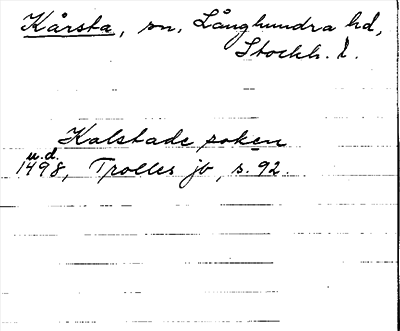 Kårsta, sn, Långhundra hd,
Stockh. l.
Kalstade soken
u.d.
1498, Trolles jb, s. 92.